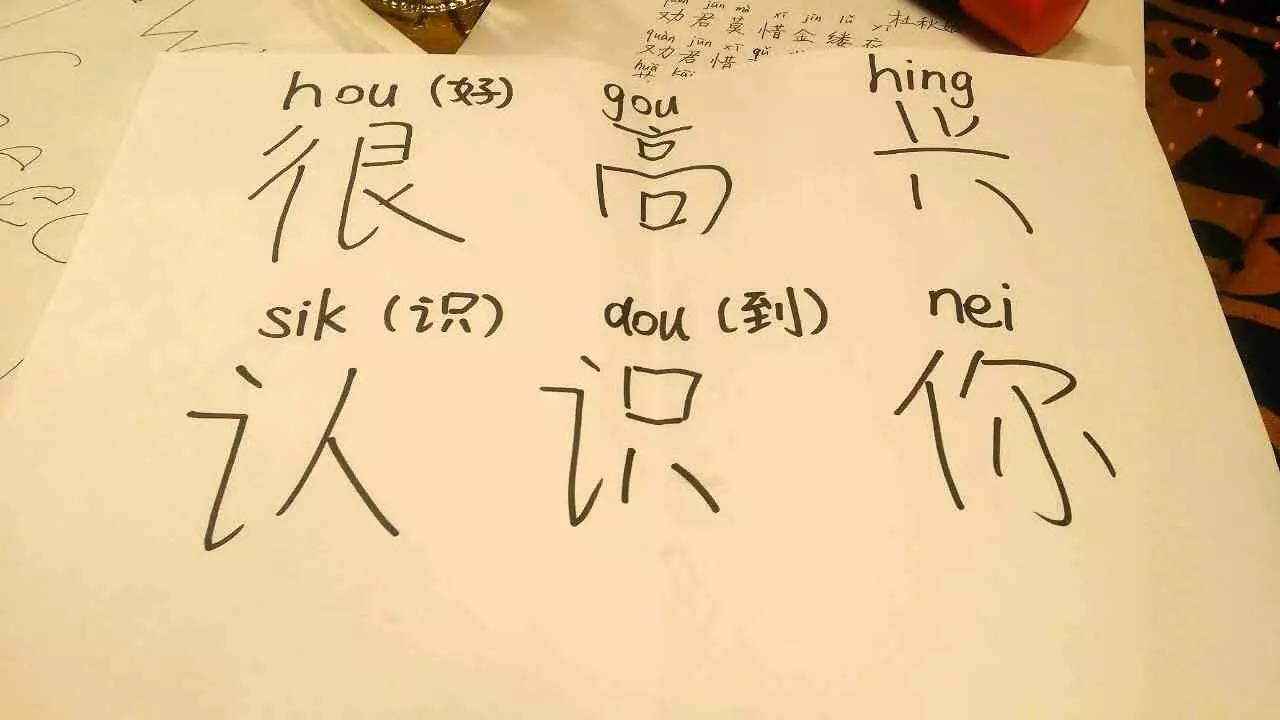 quàn jūn mò xī jīn lǚ
劝君莫惜金缕衣
杜秋娘
quàn jūn xī
劝君惜
huā kāi
hou (好) gou hing
很高兴
sik (识) dou (到) nei
认识你